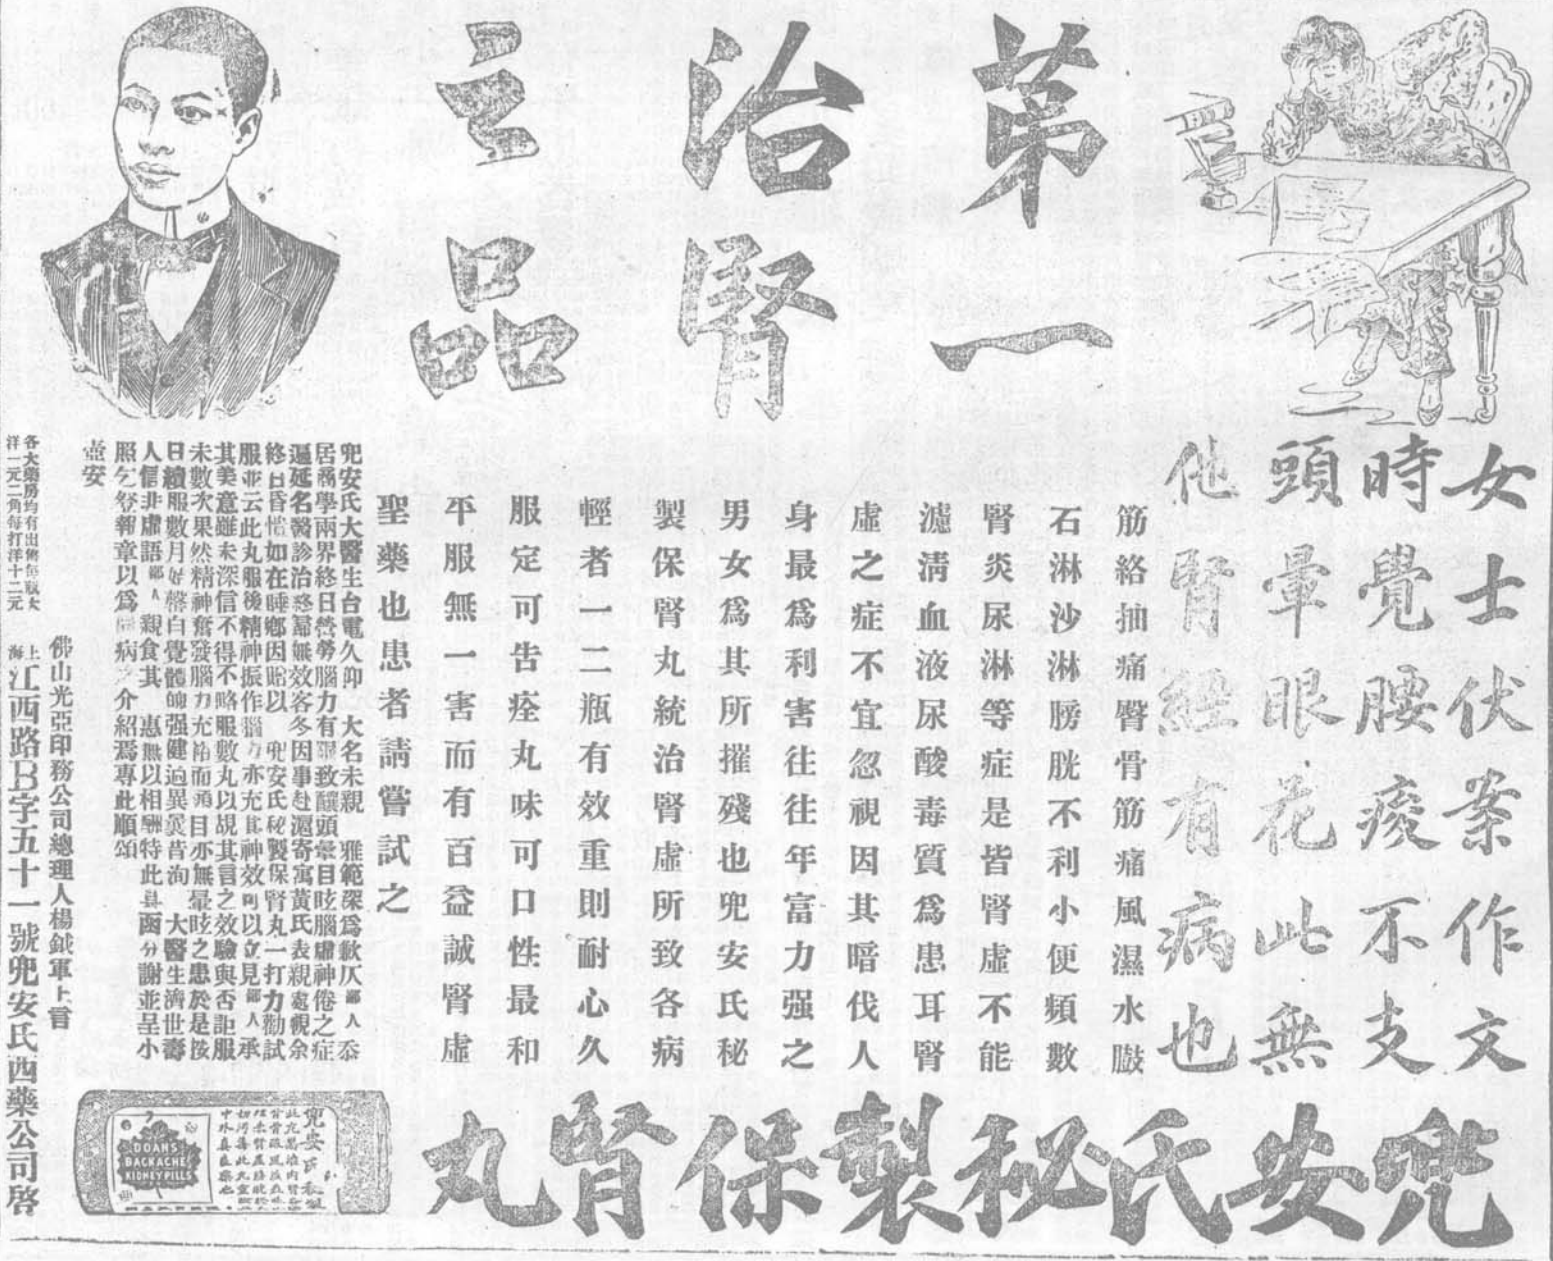 第一
治腎
之品
女士伏案作文
時覺腰痠不支
頭暈眼花此無
他腎經有病也
筋絡抽痛臀骨筋痛風濕水臌
石淋沙淋膀胱不利小便頻數
腎炎尿淋等症是皆腎虛不能
濾淸血液尿酸毒質爲患耳腎
虛之症不宜忽視因其暗伐人
身最爲利害往往年富力强之
男女爲其所摧殘也兜安氏秘
製保腎丸統治腎虛所致各病
輕者一二瓶有效重則耐心久
服定可告痊丸味可口性最和
平服無一害而有百益誠腎虛
聖藥也患者請嘗試之
兜安氏大醫生台電久仰 大名未親 雅範深爲歉仄鄙人忝
居商學兩界終日營勞腦力有限致釀頭暈目眩腦虛神倦之症
遍延名醫診治終屬無效客冬因事赴滬寄寓黃氏表親處親余
終日昏惰如在睡鄉因貽以 兜安氏秘製保腎丸一打力勸試
服並云此丸服後精神振作腦力亦充其神效可以立見鄙人承
其美意雖未深信不得不略服數丸以覘其言之效驗與否詎服
未數次果然精神奮發腦力充裕而兩目亦無暈眩之患於是按
日續服數月好幣自覺體師强健逈異曩昔洵 大醫生濟世壽
人信非虛語鄙人親食其 惠無以相酬特此具函分謝並呈小
照乞登報章以爲同病之介紹焉專此順頌
壺安
佛山光亞印務公司總理人楊鉞軍上言
各大藥房均有出售每瓶大
洋一元二角每打洋十二元
上海江西路B字五十一號兜安氏西藥公司啓
兜安氏秘製保腎丸
兜安氏秘
DOAN'S
BACKACHE
KIDNEY PILLS